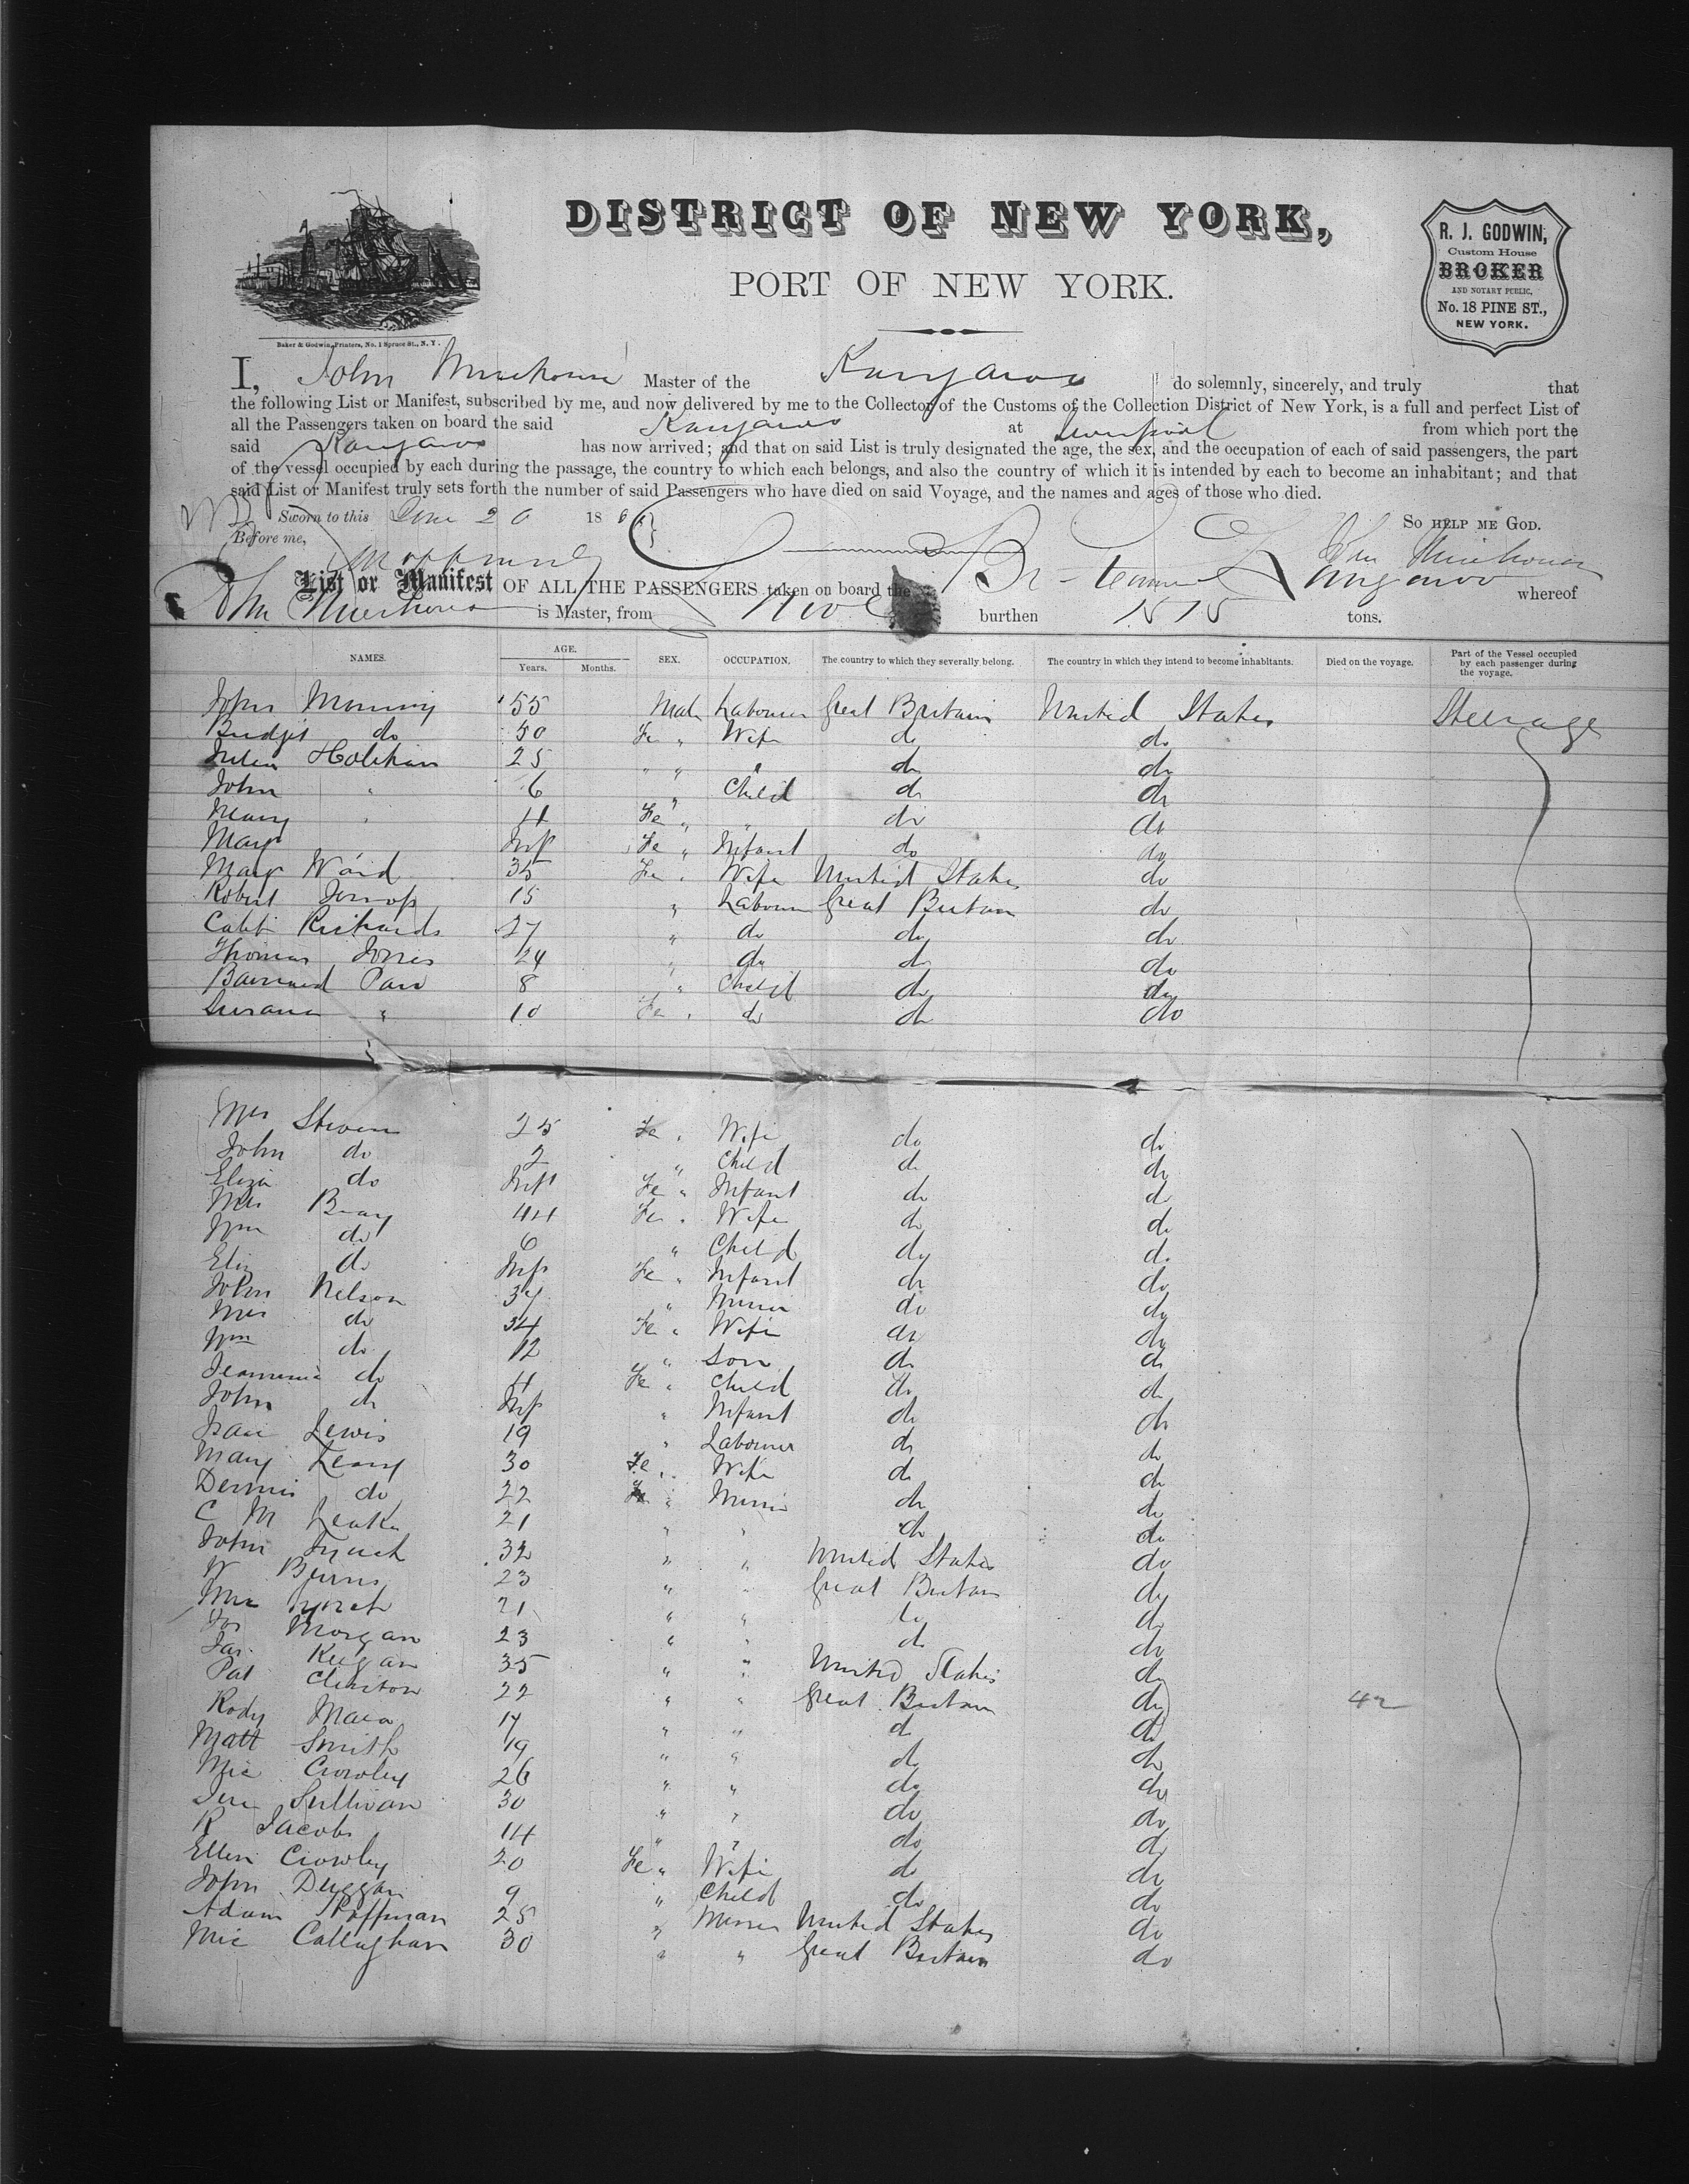 DISTRICT OF NEW YORK,
PORT OF NEW YORK.
R. J. GODWIN,
Custom House
BROKER
AND NOTARY PUBLIC,
No. 18 PINE ST.,
NEW YORK.
Baker & Godwin, Printers, No. 1 Spruce St., N. Y.
I, John Muirhouse Master of the Kangaroo do solemnly, sincerely, and truly that
the following List or Manifest, subscribed by me, and now delivered by me to the Collector of the Customs of the Collection District of New York, is a full and perfect List of
all the Passengers taken on board the said Kangaroo at Liverpool from which port the
said Kangaroo has now arrived; and that on said List is truly designated the age, the sex, and the occupation of each of said passengers, the part
of the vessel occupied by each during the passage, the country to which each belongs, and also the country of which it is intended by each to become an inhabitant; and that
said List or Manifest truly sets forth the number of said Passengers who have died on said Voyage, and the names and ages of those who died.
Sworn to this June 20 18 SO HELP ME GOD.
Before me,
List or Manifest OF ALL THE PASSENGERS taken on board the Br Kangaroo whereof
John Muirhouse is Master, from burthen 1515 tons.
NAMES. AGE. SEX. OCCUPATION. The country to which they severally belong. The country in which they intend to become inhabitants. Died on the voyage. Part of the Vessel occupied by each passenger during the voyage.
Years. Months.
John 55 Male Labourer Great Britain United States Steerage
Bridgit do 50 Fe " Wife do do
Holihan 25 " " " do do
John " 6 " Child do do
Mary " 4 Fe " " do do
Mary Inft Fe " Infant do do
Mary Ward 35 Fe " Wife United States do
Robert 15 " Labourer Great Britain do
Richards 27 " do do do
Thomas Jones 24 " do do do
8 " Child do do
" 10 Fe " do do do
Mrs Steven 25 Fe " Wife do do
John do 2 " Child do do
Eliza do Inft Fe " Infant do do
Mrs Bray 44 Fe " Wife do do
Wm do 6 " Child do do
Eliz do Inft Fe " Infant do do
John Nelson 37 " Miner do do
Mrs do 34 Fe " Wife do do
Wm do 12 " Son do do
do 4 Fe " Child do do
John do Inft " Infant do do
Isaac Lewis 19 " Labourer do do
Mary Leary 30 Fe " Wife do do
Dennis do 22 " Miner do do
C M 21 " " do do
John 32 " " United States do
W Burns 23 " " Great Britain do
Lynch 21 " " do do
Morgan 23 " " do do
Jas Keegan 35 " " United States do
Pat 22 " " Great Britain do 42
Rody Mara 17 " " do do
Matt Smith 19 " " do do
Mic Crowley 26 " " do do
Jere Sullivan 30 " " do do
R Jacobs 14 " " do do
Ellen Crowley 20 Fe " Wife do do
John Duggan 9 " Child do do
Adam Hoffman 25 " Miner United States do
Mic Callaghan 30 " " Great Britain do